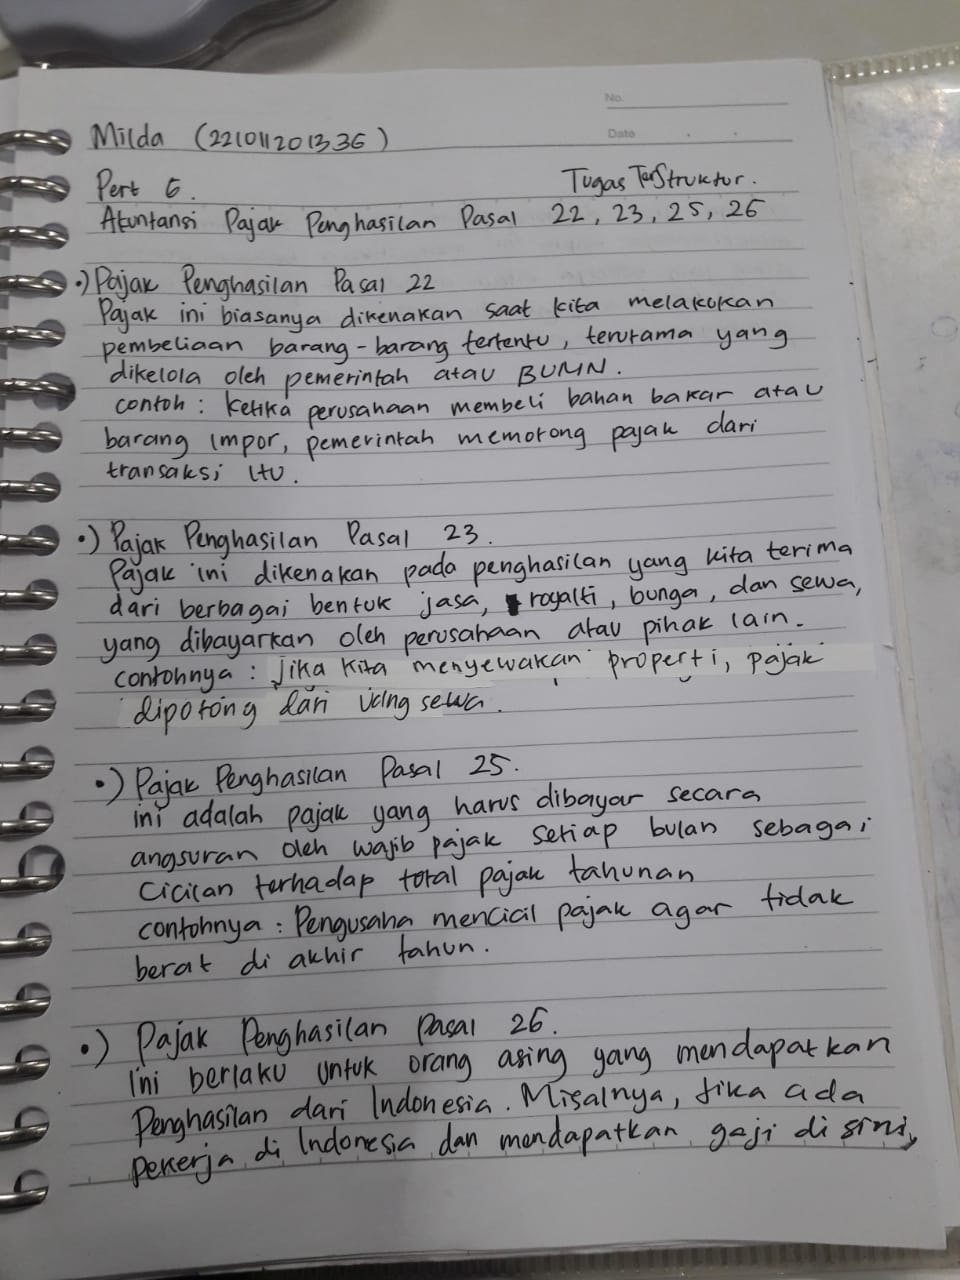 No.
Date
Milda (221011201336)
Pert 6.
Tugas Terstruktur.
Akuntansi Pajak Penghasilan Pasal 22, 23, 25, 26
•) Pajak Penghasilan Pasal 22
Pajak ini biasanya dikenakan saat kita melakukan
pembeliaan barang-barang tertentu, terutama yang
dikelola oleh pemerintah atau BUMN.
contoh : Ketika perusahaan membeli bahan bakar atau
barang impor, pemerintah memotong pajak dari
transaksi itu.
•) Pajak Penghasilan Pasal 23.
Pajak ini dikenakan pada penghasilan yang kita terima
dari berbagai bentuk jasa, royalti, bunga, dan sewa,
yang dibayarkan oleh perusahaan atau pihak lain.
contohnya : jika kita menyewakan properti, pajak
dipotong dari uang sewa.
•) Pajak Penghasilan Pasal 25.
ini adalah pajak yang harus dibayar secara
angsuran oleh wajib pajak setiap bulan sebagai
cicilan terhadap total pajak tahunan
contohnya : Pengusaha mencicil pajak agar tidak
berat di akhir tahun.
•) Pajak Penghasilan Pasal 26.
Ini berlaku untuk orang asing yang mendapatkan
Penghasilan dari Indonesia. Misalnya, jika ada
pekerja di Indonesia dan mendapatkan gaji di sini,